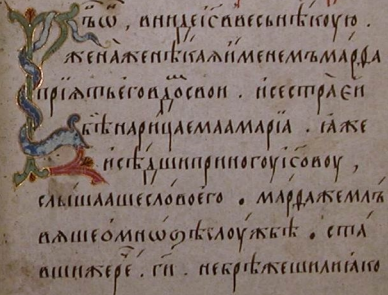 ѡ҃ , вниде і҃с ввесь нѣкоую .
жена же нѣкаѧ именемъ марѳа
приѧтъ его вдо свои . и сестра еи
бѣ нарицаемаа мариа . ꙗже
и сѣдши при ногоу і҃совоу ,
слышааше слово его . марѳа же мл҃ъ
вѧше о мнозѣ слоужбѣ . ста
вши же рече . г҃и . не брѣжеши ли ꙗко